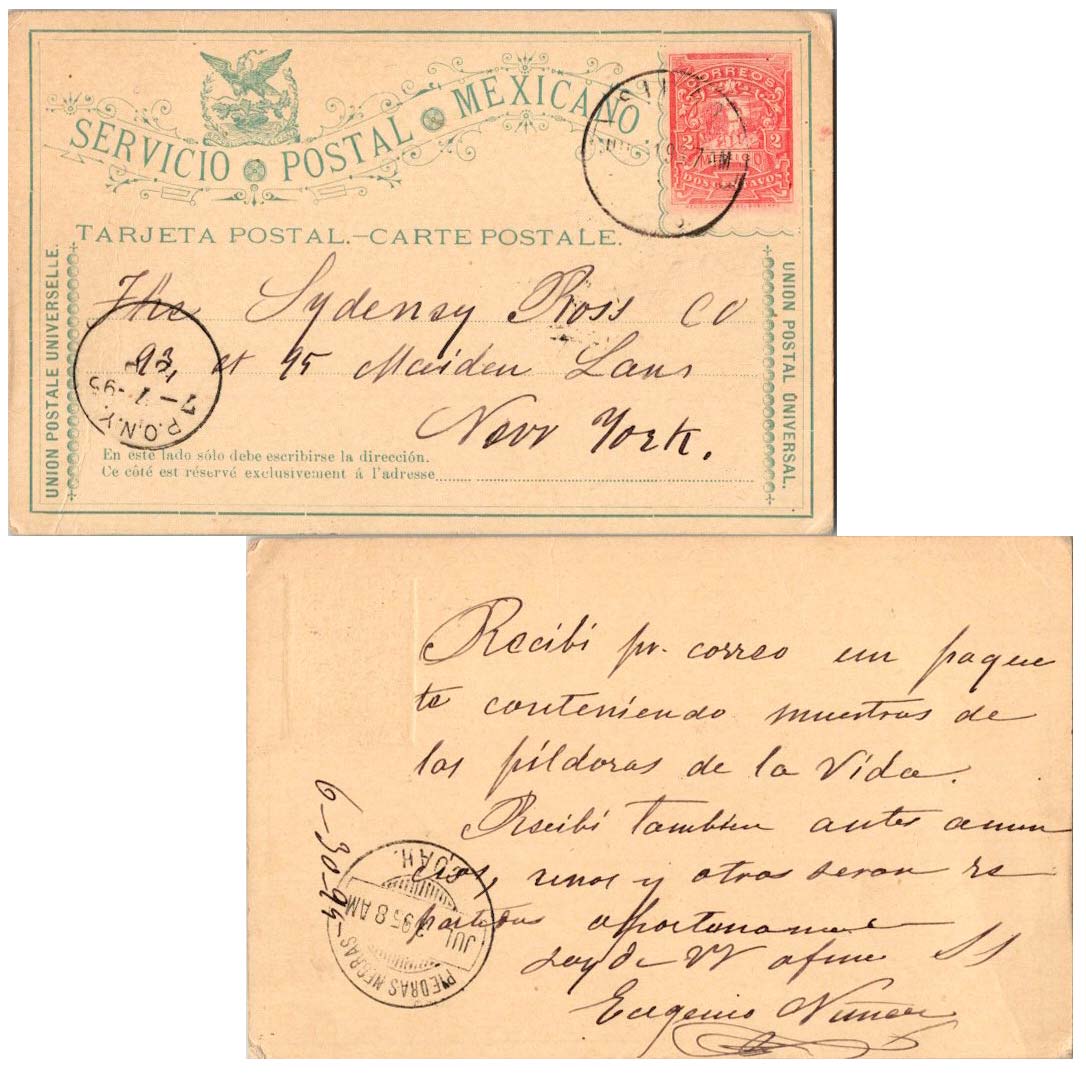 SERVICIO POSTAL MEXICANO
CORREOS
2 2
MEXICO
DOS CENTAVOS
TARJETA POSTAL.—CARTE POSTALE.
UNION POSTALE UNIVERSELLE.
UNION POSTAL UNIVERSAL.
The Sydensy Ross Co
93 et 95 Maiden Lans
New York.
P.O.N.Y.
7-95
En este lado sólo debe escribirse la dirección.
Ce côté est réservé exclusivement á l'adresse
Recibi pr. correo un paque
te conteniendo muestras de
las píldoras de la Vida.
Recibi tambien antes anun
cios, unos y otros seran re
partidos oportuname
Soy de VV afmo SS
Eugenio Nuñez
6-30-95
PIEDRAS NEGRAS
JUL 95 8 AM
COAH.